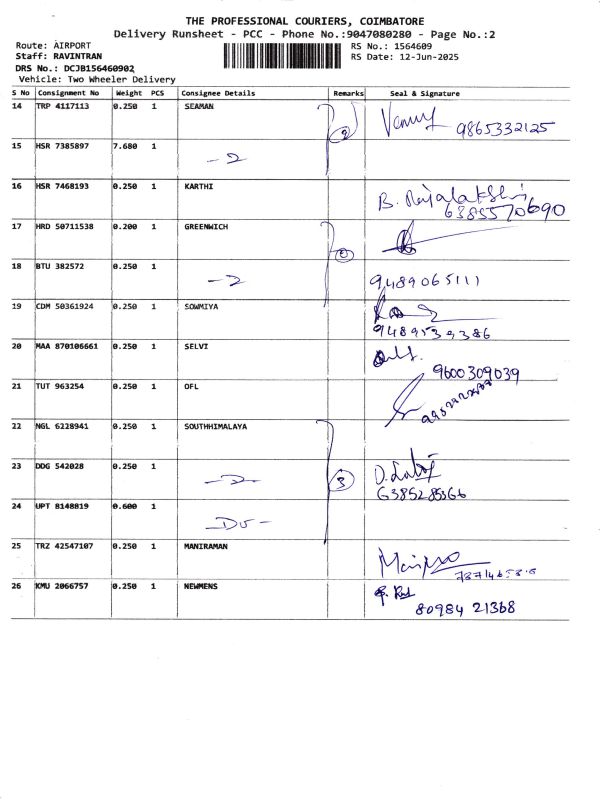 THE PROFESSIONAL COURIERS, COIMBATORE
Delivery Runsheet - PCC - Phone No.:9047080280 - Page No.:2
Route: AIRPORT RS No.: 1564609
Staff: RAVINTRAN RS Date: 12-Jun-2025
DRS No.: DCJB156460902
Vehicle: Two Wheeler Delivery
S No Consignment No Weight PCS Consignee Details Remarks Seal & Signature
14 TRP 4117113 0.250 1 SEAMAN 2 9865332125
15 HSR 7385897 7.680 1 -2
16 HSR 7468193 0.250 1 KARTHI B. Rajalakshmi
6385570690
17 HRD 50711538 0.200 1 GREENWICH
18 BTU 382572 0.250 1 -2 9489065111
19 CDM 50361924 0.250 1 SOWMIYA
9489539386
20 MAA 870106661 0.250 1 SELVI
9600309039
21 TUT 963254 0.250 1 OFL
22 NGL 6228941 0.250 1 SOUTHHIMALAYA
23 DDG 542028 0.250 1 -2- 3
6385285366
24 UPT 8148819 0.600 1 -Do-
25 TRZ 42547107 0.250 1 MANIRAMAN
26 KMU 2066757 0.250 1 NEWMENS
80984 21368